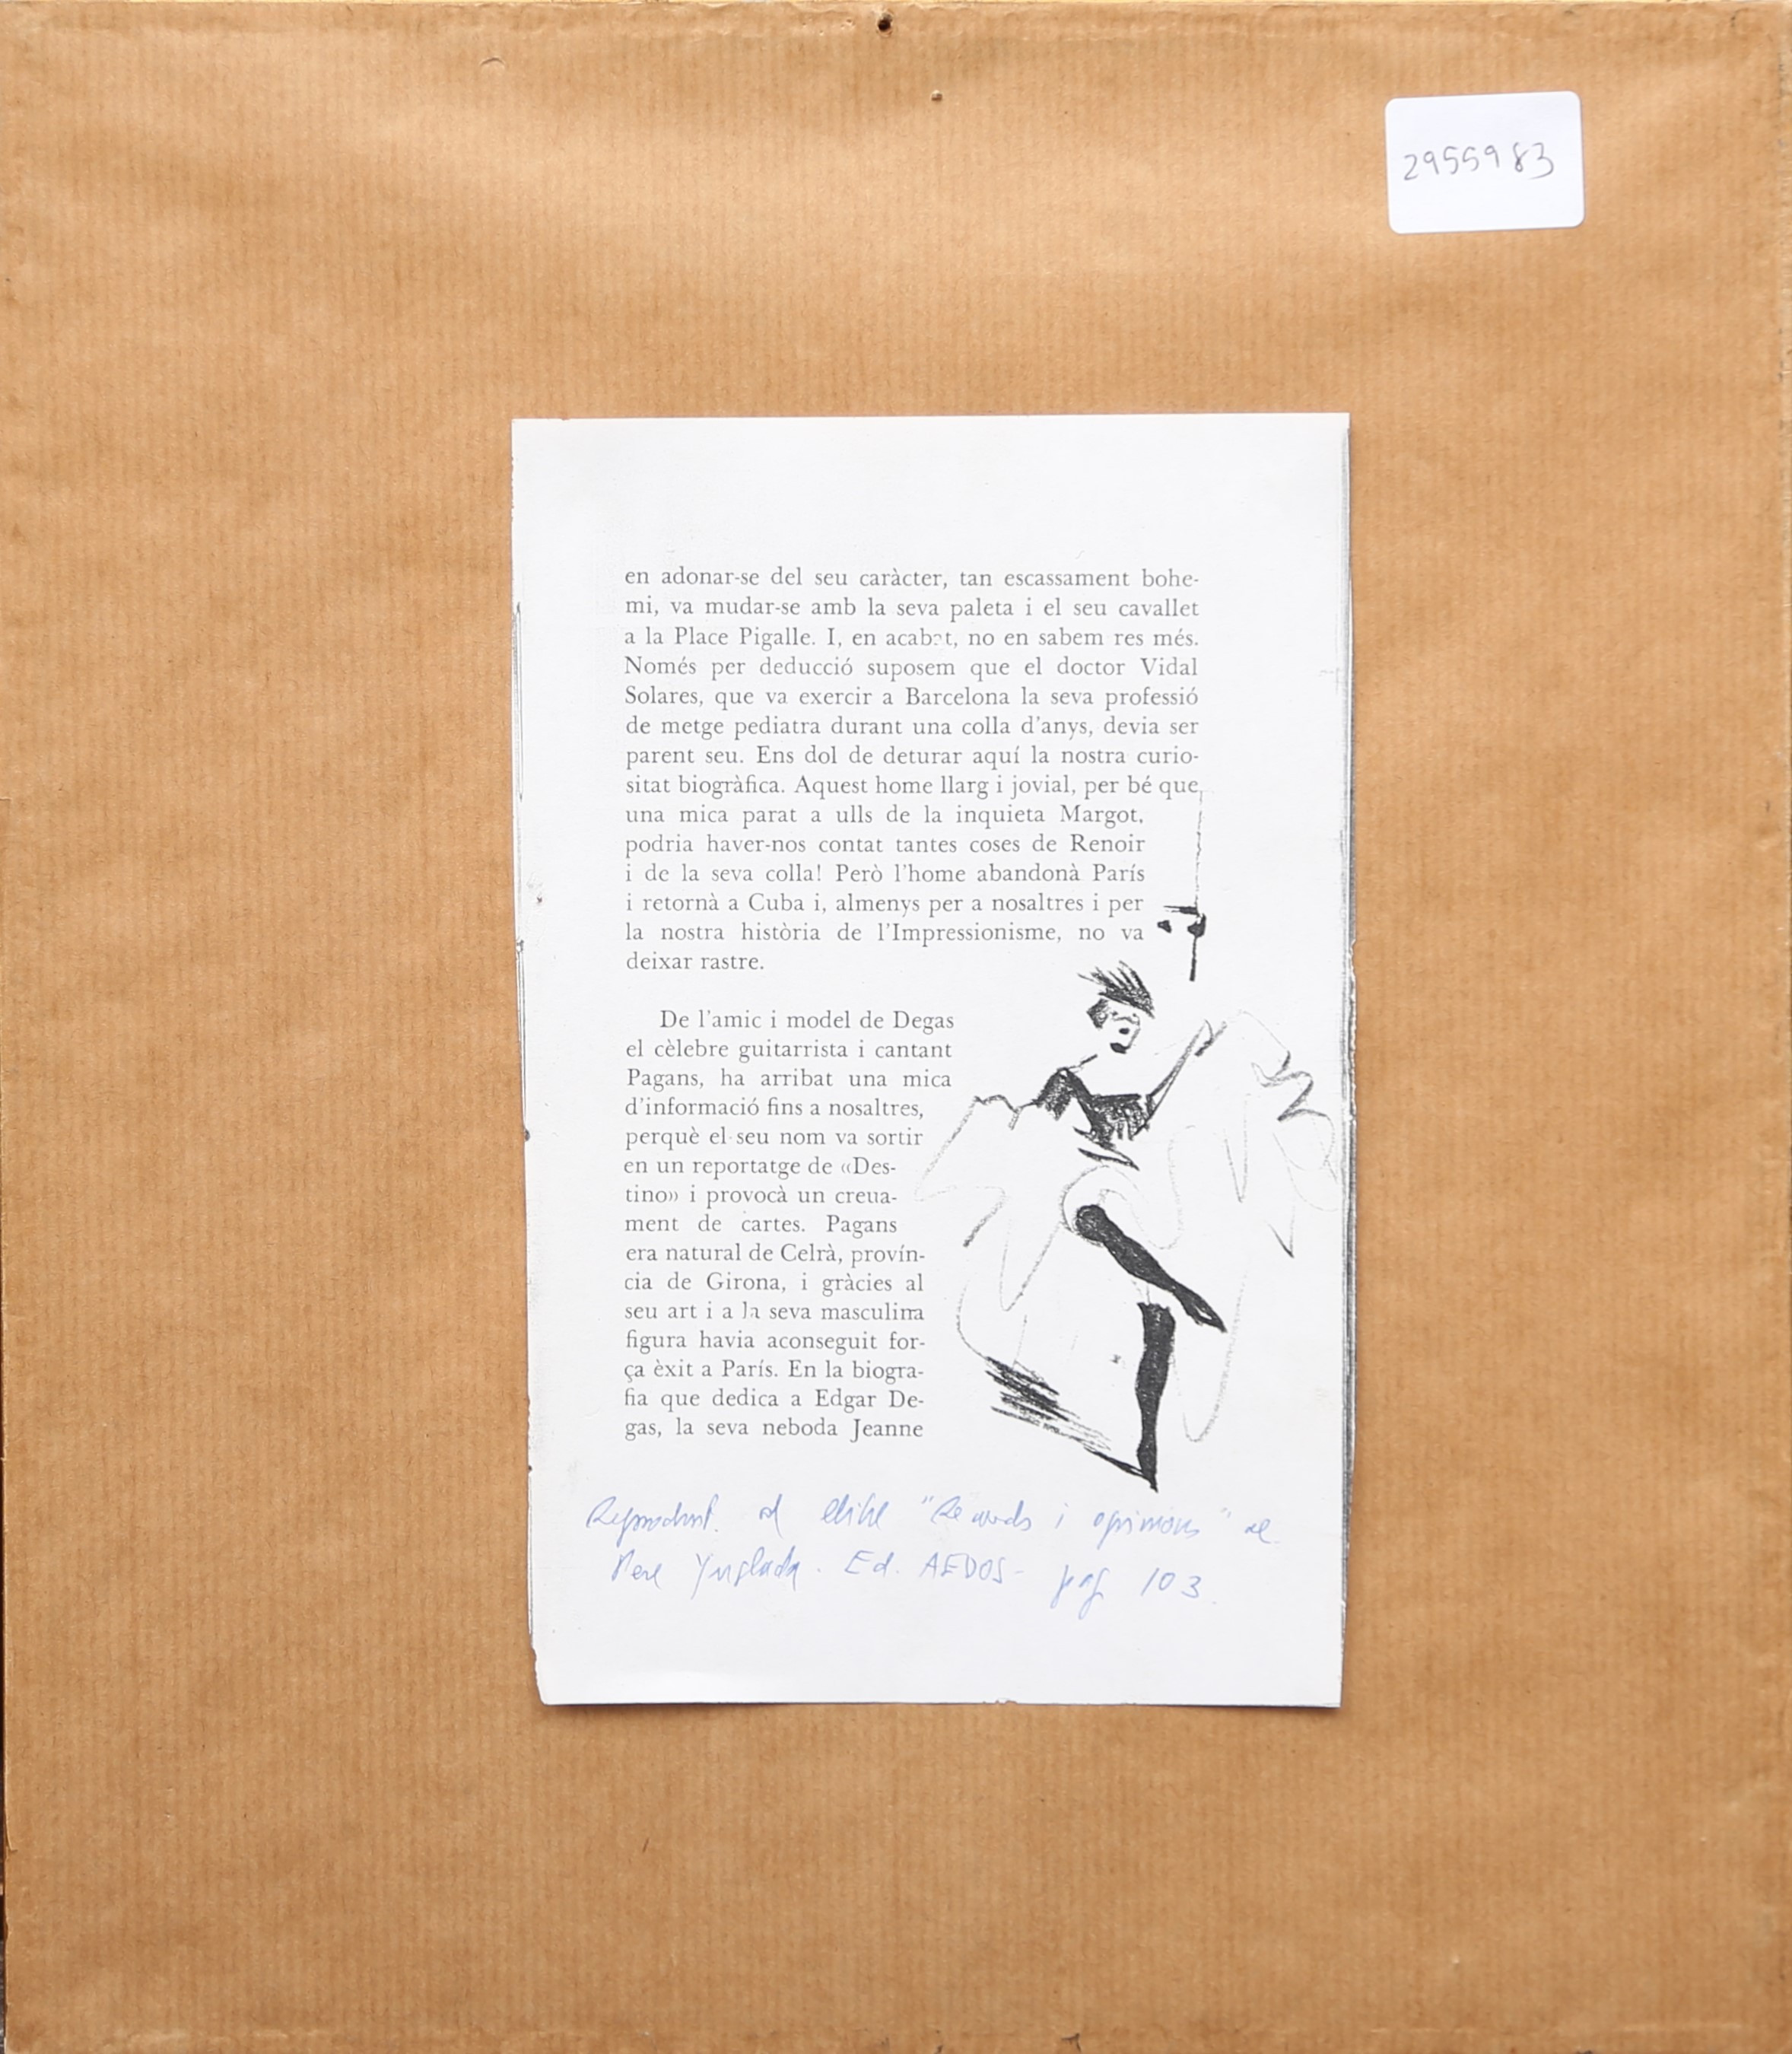 2955983
en adonar-se del seu caràcter, tan escassament bohe-
mi, va mudar-se amb la seva paleta i el seu cavallet
a la Place Pigalle. I, en acabat, no en sabem res més.
Només per deducció suposem que el doctor Vidal
Solares, que va exercir a Barcelona la seva professió
de metge pediatra durant una colla d'anys, devia ser
parent seu. Ens dol de deturar aquí la nostra curio-
sitat biogràfica. Aquest home llarg i jovial, per bé que
una mica parat a ulls de la inquieta Margot,
podria haver-nos contat tantes coses de Renoir
i de la seva colla! Però l'home abandonà París
i retornà a Cuba i, almenys per a nosaltres i per
la nostra història de l'Impressionisme, no va
deixar rastre.
De l'amic i model de Degas
el cèlebre guitarrista i cantant
Pagans, ha arribat una mica
d'informació fins a nosaltres,
perquè el seu nom va sortir
en un reportatge de «Des-
tino» i provocà un creua-
ment de cartes. Pagans
era natural de Celrà, provín-
cia de Girona, i gràcies al
seu art i a la seva masculina
figura havia aconseguit for-
ça èxit a París. En la biogra-
fia que dedica a Edgar De-
gas, la seva neboda Jeanne
Reproduït al llibre "Records i opinions" de
Pere Ynglada. Ed. AEDOS - pag 103.